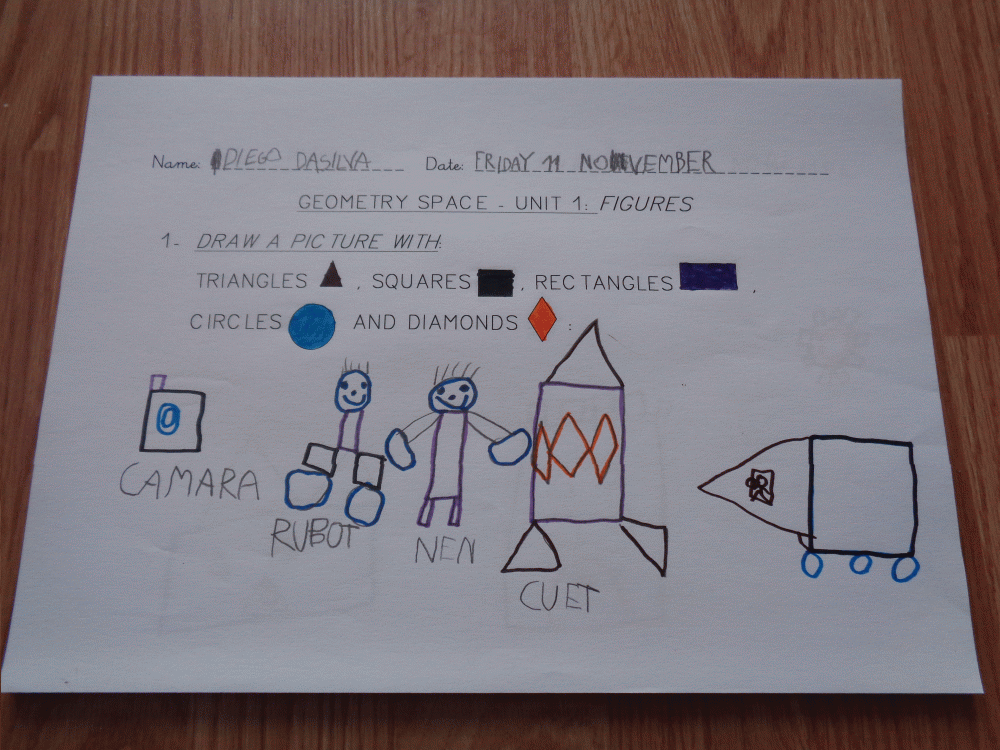 Name: DIEGO DASILVA Date: FRIDAY 11 NOVEMBER
GEOMETRY SPACE - UNIT 1: FIGURES
1- DRAW A PICTURE WITH:
TRIANGLES , SQUARES , RECTANGLES ,
CIRCLES AND DIAMONDS :
CAMARA
RUBOT
NEN
CUET